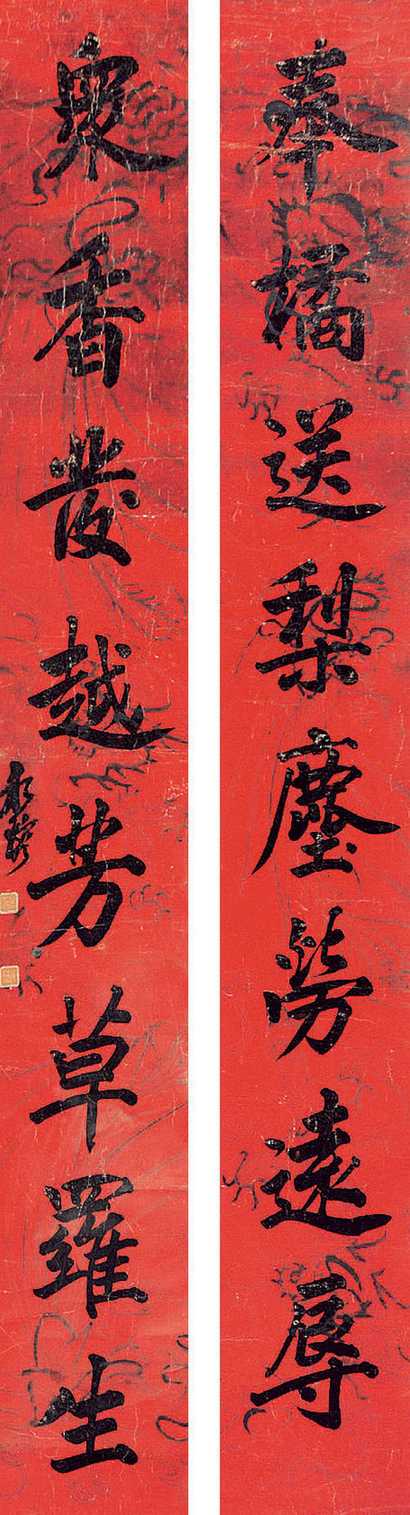 奉橘送梨塵勞遠辱
衆香發越芳草羅生